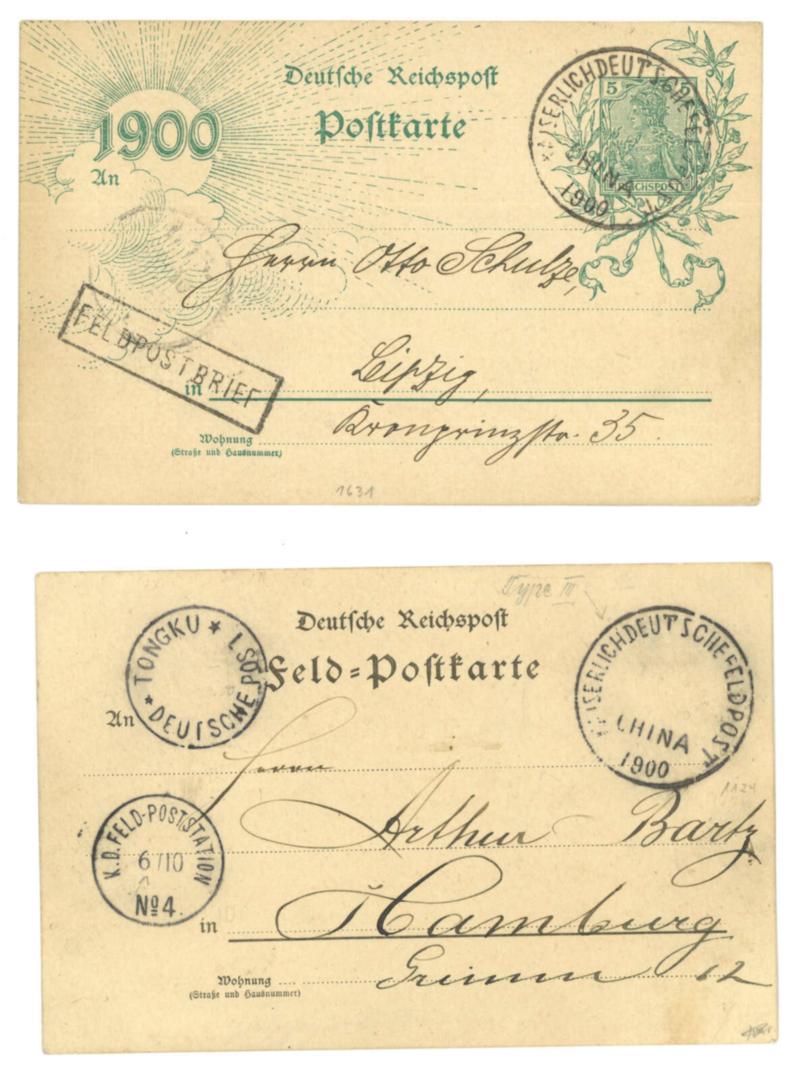 Deutsche Reichspost
Postkarte
1900
An
KAISERLICH DEUTSCHE
CHINA
1900
5
REICHSPOST
Herrn Otto Schulze,
FELDPOSTBRIEF
in Leipzig,
Kronprinzstr. 35.
Wohnung
(Straße und Hausnummer)
1631
Type III
Deutsche Reichspost
Feld=Postkarte
TONGKU
DEUTSCHE POST
KAISERLICH DEUTSCHE FELDPOST
CHINA
1900
An
Herrn
1124
Arthur Bartz
K.D. FELD-POSTSTATION
6/10
No 4.
in Hamburg
Grimm 12
Wohnung
(Straße und Hausnummer)